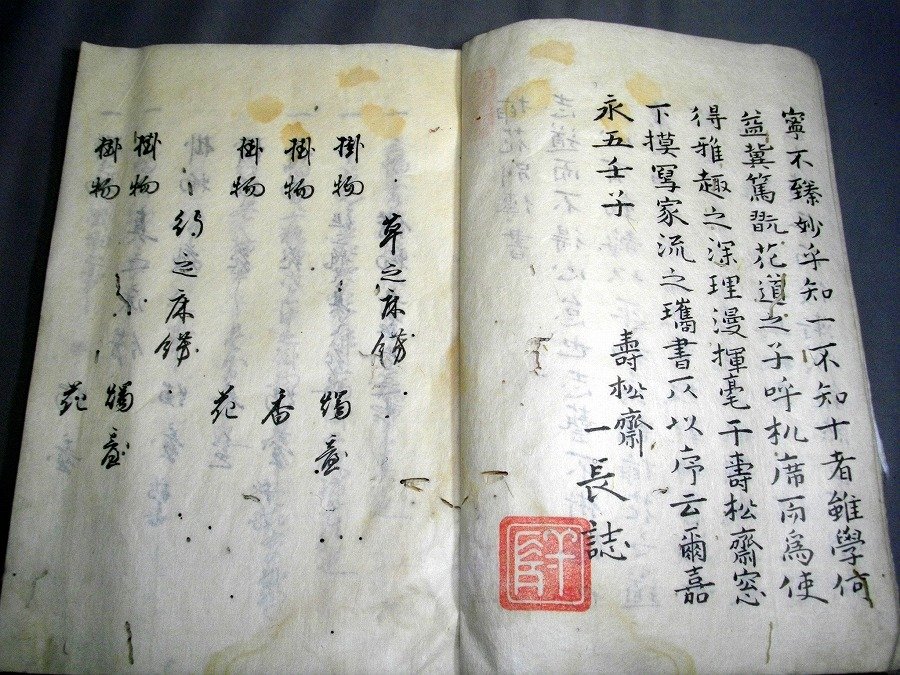 寧不臻妙乎知一不知十者雖學何
益冀篤翫花道之子呼机席而為使
得雅趣之深理漫揮毫于壽松齋窓
下摸寫家流之攜書所以序云爾嘉
永五壬子
壽松齋
一長誌
草之床餝
掛物
燭臺
掛物
香
掛物
花
行之床餝
掛物
燭臺
掛物
花